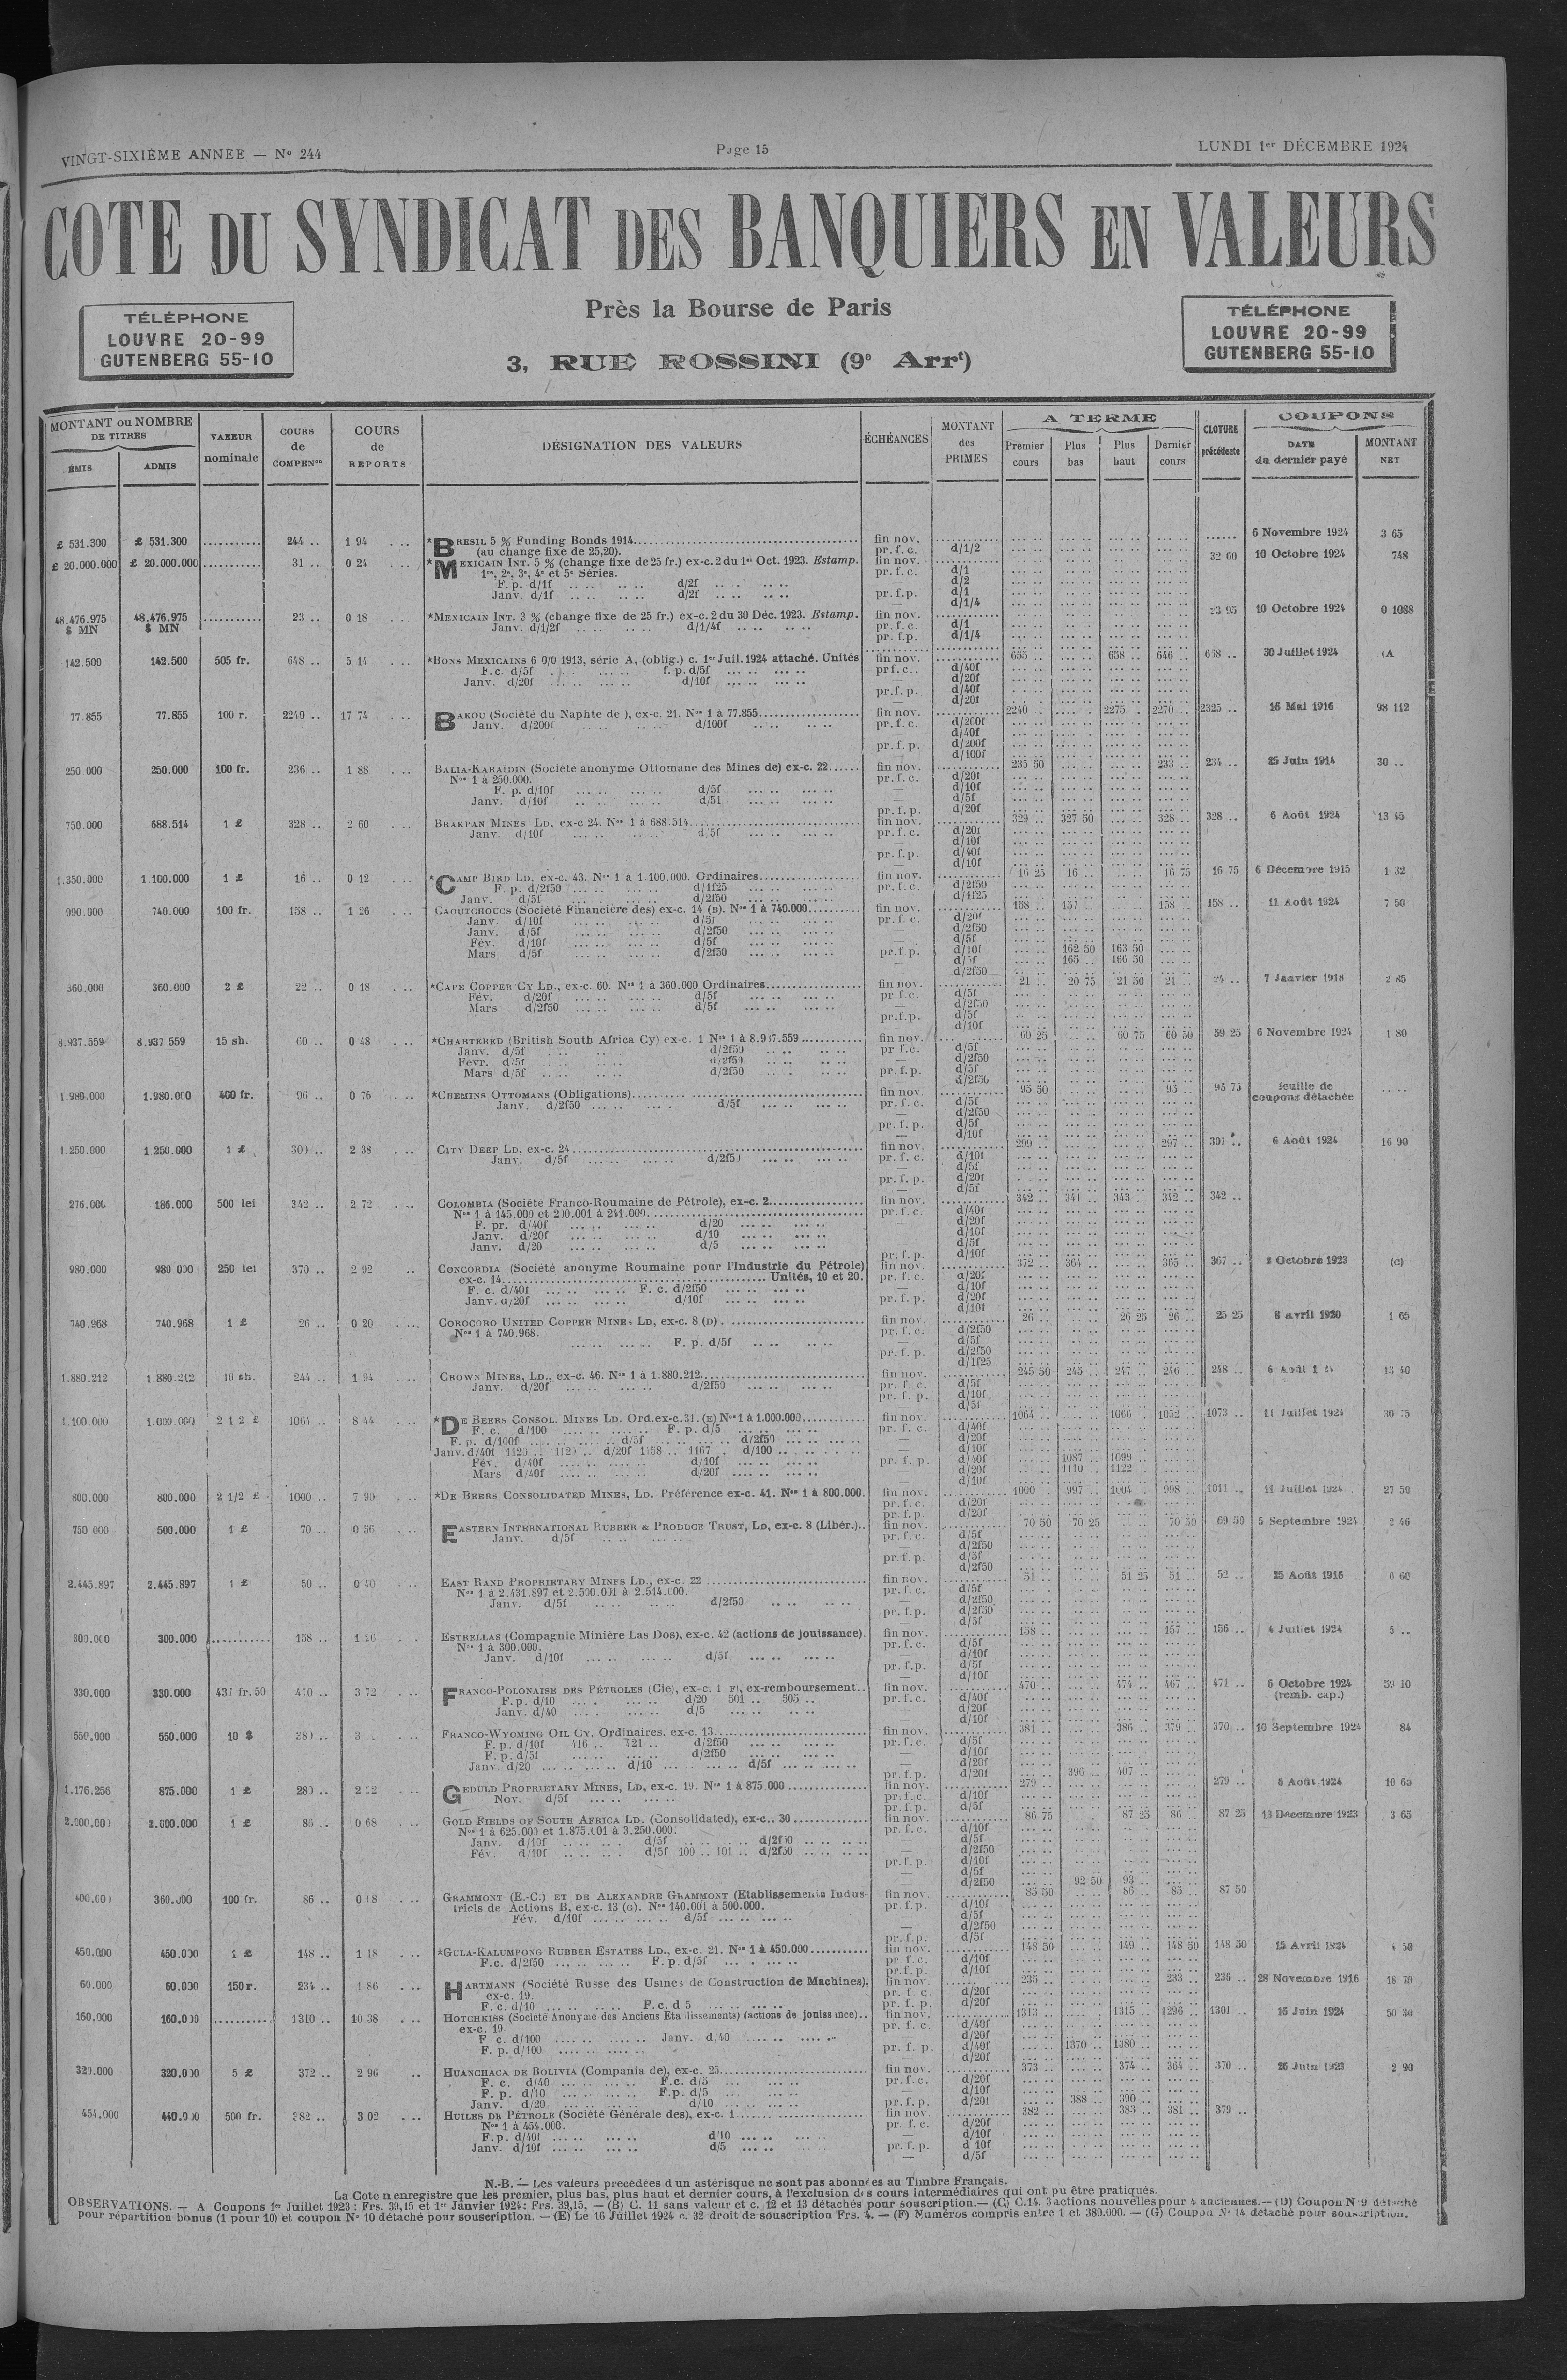 VINGT-SIXIÈME ANNEE — N° 244
Page 15
LUNDI 1er DÉCEMBRE 1924
COTE DU SYNDICAT DES BANQUIERS EN VALEURS
TÉLÉPHONE
LOUVRE 20-99
GUTENBERG 55-10
Près la Bourse de Paris
3, RUE ROSSINI (9e Arrt)
TÉLÉPHONE
LOUVRE 20-99
GUTENBERG 55-10
MONTANT ou NOMBRE DE TITRES
ÉMIS
ADMIS
VALEUR nominale
COURS de COMPENon
COURS de REPORTS
DÉSIGNATION DES VALEURS
ÉCHÉANCES
MONTANT des PRIMES
A TERME
Premier cours
Plus bas
Plus haut
Dernier cours
CLOTURE précédente
COUPONS
DATE du dernier payé
MONTANT NET
£ 531.300 £ 531.300 244 .. 1 94 *BRESIL 5 % Funding Bonds 1914 fin nov. 6 Novembre 1924 3 65
(au change fixe de 25,20). pr. f. c. d/1/2
£ 20.000.000 £ 20.000.000 31 .. 0 24 *MEXICAIN INT. 5 % (change fixe de 25 fr.) ex-c. 2 du 1er Oct. 1923. Estamp. fin nov. 32 60 10 Octobre 1924 748
1re, 2e, 3e, 4e et 5e Séries. pr. f. c. d/1
F. p. d/1f d/2f d/2
Janv. d/1f d/2f pr.f.p. d/1
d/1/4
48.476.975 $ MN 48.476.975 $ MN 23 .. 0 18 *MEXICAIN INT. 3 % (change fixe de 25 fr.) ex-c. 2 du 30 Déc. 1923. Estamp. fin nov. 23 95 10 Octobre 1924 0 1088
Janv. d/1/2f d/1/4f pr. f. c. d/1
pr. f.p. d/1/4
142.500 142.500 505 fr. 648 .. 5 14 *BONS MEXICAINS 6 0/0 1913, série A, (oblig.) c. 1er Juil. 1924 attaché. Unités fin nov. 655 .. 658 .. 646 .. 658 .. 30 Juillet 1924 (A
F.c. d/5f f. p. d/5f pr f. c. d/40f
Janv. d/20f d/10f d/20f
pr.f. p. d/40f
d/20f
77.855 77.855 100 r. 2240 .. 17 74 BAKOU (Société du Naphte de ), ex-c. 21. Nos 1 à 77.855 fin nov. 2240 .. 2275 .. 2270 .. 2325 .. 16 Mai 1916 98 112
Janv. d/200f d/100f pr. f. c. d/200f
d/40f
pr. f. p. d/200f
d/100f
250 000 250.000 100 fr. 236 .. 1 88 BALIA-KARAÏDIN (Société anonyme Ottomane des Mines de) ex-c. 22 fin nov. 235 50 233 .. 234 .. 25 Juin 1914 30 ..
Nos 1 à 250.000. pr. f. c. d/20f
F. p. d/10f d/5f d/10f
Janv. d/10f d/5f d/5f
pr. f. p. d/20f
750.000 688.514 1 £ 328 .. 2 60 BRAKPAN MINES LD, ex-c 24. Nos 1 à 688.514 fin nov. 329 .. 327 50 328 .. 328 .. 6 Août 1924 13 45
Janv. d/10f d/5f pr. f. c. d/20f
d/10f
pr. f.p. d/40f
d/10f
1.350.000 1.100.000 1 £ 16 .. 0 12 *CAMP BIRD LD, ex-c. 43. Nos 1 à 1.100.000. Ordinaires fin nov. 16 25 16 .. 16 75 16 75 6 Décembre 1915 1 32
F. p. d/2f50 d/1f25 pr. f. c. d/2f50
Janv. d/5f d/2f50 d/1f25
990.000 740.000 100 fr. 158 .. 1 26 CAOUTCHOUCS (Société Financière des) ex-c. 14 (B). Nos 1 à 740.000 fin nov. 158 .. 157 .. 158 .. 158 .. 11 Août 1924 7 50
Janv. d/10f d/5f pr. f. c. d/20f
Janv. d/5f d/2f50 d/2f50
Fév. d/10f d/5f d/5f
Mars d/5f d/2f50 pr.f.p. d/10f 162 50 163 50
d/5f 165 .. 166 50
d/2f50
360.000 360.000 2 £ 22 .. 0 18 *CAPE COPPER CY LD., ex-c. 60. Nos 1 à 360.000 Ordinaires fin nov. 21 .. 20 75 21 50 21 .. 24 .. 7 Janvier 1918 2 85
Fév. d/20f d/5f pr f.c. d/5f
Mars d/2f50 d/5f d/2f50
pr.f.p. d/5f
d/10f
8.937.559 8.937 559 15 sh. 60 .. 0 48 *CHARTERED (British South Africa Cy) ex-c. 1 Nos 1 à 8.937.559 fin nov. 60 25 60 75 60 50 59 25 6 Novembre 1924 1 80
Janv. d/5f d/2f50 pr f.c. d/5f
Févr. d/5f d/2f50 d/2f50
Mars d/5f d/2f50 pr. f.p. d/5f
d/2f50
1.980.000 1.980.000 400 fr. 96 .. 0 76 *CHEMINS OTTOMANS (Obligations) fin nov. 95 50 95 .. 95 75 feuille de coupons détachée
Janv. d/2f50 d/5f pr. f. c. d/5f
d/2f50
pr. f. p. d/5f
d/10f
1.250.000 1.250.000 1 £ 300 .. 2 38 CITY DEEP LD, ex-c. 24 fin nov. 299 .. 297 .. 301 .. 6 Août 1924 16 90
Janv. d/5f d/2f50 pr. f. c. d/10f
d/5f
pr. f. p. d/20f
d/5f
276.000 186.000 500 lei 342 .. 2 72 COLOMBIA (Société Franco-Roumaine de Pétrole), ex-c. 2 fin nov. 342 .. 341 .. 343 .. 342 .. 342 ..
Nos 1 à 145.000 et 200.001 à 241.000 pr. f. c. d/40f
F. pr. d/40f d/20 d/20f
Janv. d/20f d/10 d/10f
Janv. d/20 d/5 d/5f
pr. f. p. d/10f
980.000 980 000 250 lei 370 .. 2 92 CONCORDIA (Société anonyme Roumaine pour l'Industrie du Pétrole) fin nov. 372 .. 364 .. 365 .. 367 .. 2 Octobre 1923 (C)
ex-c. 14 Unités, 10 et 20. pr. f. c. d/20f
F. c. d/40f F. c. d/2f50 d/10f
Janv. d/20f d/10f pr. f. p. d/20f
d/10f
740.968 740.968 1 £ 26 .. 0 20 COROCORO UNITED COPPER MINES LD, ex-c. 8 (D) fin nov. 26 .. 26 25 26 .. 25 25 8 avril 1920 1 65
Nos 1 à 740.968. pr. f. c. d/2f50
F. p. d/5f d/5f
pr. f. p. d/2f50
d/1f25
1.880.212 1.880.212 10 sh. 244 .. 1 94 CROWN MINES, LD., ex-c. 46. Nos 1 à 1.880.212 fin nov. 245 50 245 .. 247 .. 246 .. 248 .. 13 40
Janv. d/20f d/2f50 pr. f. c. d/5f
pr. f. p. d/10f
d/5f
1.100 000 1.000.000 2 1 2 £ 1064 .. 8 44 *DE BEERS CONSOL. MINES LD. Ord.ex-c.31. (E) Nos 1 à 1.000.000 fin nov. 1064 .. 1066 .. 1052 .. 1073 .. 11 Juillet 1924 30 75
F. c. d/100 F. p. d/5 pr. f. c. d/40f
F. p. d/100f d/5f d/2f50 d/20f
Janv. d/40f 1120 .. 1120 .. d/20f 1158 .. 1167 . d/100 d/10f
Fév. d/40f d/10f pr. f. p. d/40f 1087 .. 1099 ..
Mars d/40f d/20f d/20f 1110 .. 1122 ..
d/10f
800.000 800.000 2 1/2 £ 1000 .. 7 90 *DE BEERS CONSOLIDATED MINES, LD. Préférence ex-c. 41. Nos 1 à 800.000. fin nov. 1000 .. 997 .. 1004 .. 998 .. 1011 .. 11 Juillet 1924 27 50
pr. f. c. d/20f
pr. f. p. d/20f
750 000 500.000 1 £ 70 .. 0 56 EASTERN INTERNATIONAL RUBBER & PRODUCE TRUST, LD, ex-c. 8 (Libér.) fin nov. 70 50 70 25 70 50 69 50 5 Septembre 1924 2 46
Janv. d/5f pr. f. c. d/5f
d/2f50
pr. f. p. d/5f
d/2f50
2.445.897 2.445.897 1 £ 50 .. 0 40 EAST RAND PROPRIETARY MINES LD., ex-c. 22 fin nov. 51 .. 51 25 51 .. 52 .. 25 Août 1916 0 60
Nos 1 à 2.431.897 et 2.500.001 à 2.514.000. pr. f. c. d/5f
Janv. d/5f d/2f50 d/2f50
pr. f. p. d/2f50
d/5f
300.000 300.000 158 .. 1 26 ESTRELLAS (Compagnie Minière Las Dos), ex-c. 42 (actions de jouissance). fin nov. 158 .. 157 .. 156 .. 4 Juillet 1924 5 ..
Nos 1 à 300.000. pr. f. c. d/5f
Janv. d/10f d/5f d/10f
pr. f.p. d/5f
d/10f
330.000 330.000 437 fr. 50 470 .. 3 72 FRANCO-POLONAISE DES PÉTROLES (Cie), ex-c. 1 F), ex-remboursement fin nov. 470 .. 474 .. 467 .. 471 .. 6 Octobre 1924 59 10
F. p. d/10 d/20 501 .. 505 .. pr. f. c. d/40f (remb. cap.)
Janv. d/40 d/5 d/20f
d/10f
550,000 550.000 10 $ 380 .. 3 FRANCO-WYOMING OIL CY, Ordinaires, ex-c. 13 fin nov. 381 .. 386 .. 379 .. 370 .. 10 Septembre 1924 84
F. p. d/10f 416 .. 421 .. d/2f50 pr. f. c. d/5f
F. p. d/5f d/2f50 d/10f
Janv. d/20 d/10 d/5f d/20f
pr. f. p. d/20f 396 .. 407 ..
1.176.256 875.000 1 £ 280 .. 2 22 GEDULD PROPRIETARY MINES, LD, ex-c. 19. Nos 1 à 875 000 fin nov. 279 .. 279 .. 6 Août 1924 10 65
Nov. d/5f pr. f. c. d/10f
pr. f. p. d/5f
2.000.000 2.000.000 1 £ 86 .. 0 68 GOLD FIELDS OF SOUTH AFRICA LD. (Consolidated), ex-c.. 30 fin nov. 86 75 87 25 86 .. 87 25 13 Décembre 1923 3 65
Nos 1 à 625.000 et 1.875.001 à 3.250.000. pr. f. c. d/10f
Janv. d/10f d/5f d/2f50 d/5f
Fév. d/10f d/5f 100 .. 101 .. d/2f50 d/2f50
pr. f. p. d/10f
d/5f
d/2f50 92 50 93 ..
400.000 360.000 100 fr. 86 .. GRAMMONT (E.-C.) ET DE ALEXANDRE GRAMMONT (Etablissements Indus- fin nov. 85 50 86 .. 85 .. 87 50
triels de Actions B, ex-c. 13 (G). Nos 140.001 à 500.000. pr. f. p. d/10f
Fév. d/10f d/5f d/5f
d/2f50
pr. f. p. d/5f
450.000 450.000 1 £ 148 .. 1 18 *GULA-KALUMPONG RUBBER ESTATES LD., ex-c. 21. Nos 1 à 450.000 fin nov. 148 50 149 .. 148 50 148 50 15 Avril 1924 4 50
F.c. d/2f50 F. p. d/5f pr f. c. d/10f
pr. f. p. d/10f
60.000 60.000 150 r. 234 .. 1 86 HARTMANN (Société Russe des Usines de Construction de Machines), fin nov. 235 .. 233 .. 236 .. 28 Novembre 1916 18 70
ex-c. 19. pr. f. c d/20f
F. c. d/10 F. c. d 5 pr. f. p. d/20f
160,000 160.000 1310 .. 10 38 HOTCHKISS (Société Anonyme des Anciens Etablissements) (actions de jouissance) fin nov. 1313 .. 1315 .. 1296 .. 1301 .. 16 Juin 1924 50 30
ex-c. 19 pr. f. c. d/40f
F c. d/100 Janv. d/40 d/20f
F. p. d/100 pr. f. p. d/40f 1370 .. 1380 ..
d/20f
320.000 320.000 5 £ 372 .. 2 96 HUANCHACA DE BOLIVIA (Compania de), ex-c. 25 fin nov. 373 .. 374 .. 364 .. 370 .. 26 Juin 1923 2 90
F. c. d/40 F.c. d/5 pr. f. c. d/20f
F. p. d/10 F.p. d/5 d/10f
Janv. d/20 d/10 pr. f. p. d/20f 388 .. 390 ..
454.000 440.000 500 fr. 382 .. 3 02 HUILES DE PÉTROLE (Société Générale des), ex-c. 1 fin nov. 382 .. 383 .. 381 .. 379 ..
Nos 1 à 454.000. pr. f. c. d/20f
F. p. d/40f d/10 d/10f
Janv. d/10f d/5 pr. f. p. d 10f
d/5f
N.-B. — Les valeurs precédées d un astérisque ne sont pas abonnées au Timbre Français.
La Cote n enregistre que les premier, plus bas, plus haut et dernier cours, à l'exclusion des cours intermédiaires qui ont pu être pratiqués.
OBSERVATIONS. — A Coupons 1er Juillet 1923 : Frs. 39,15 et 1er Janvier 1924 : Frs. 39,15, — (B) C. 11 sans valeur et c. 12 et 13 détachés pour souscription.— (C) C.14. 3 actions nouvelles pour 4 anciennes.— (D) Coupon N° 9 détaché
pour répartition bonus (1 pour 10) et coupon N° 10 détaché pour souscription. — (E) Le 16 Juillet 1924 c. 32 droit de souscription Frs. 4. — (F) Numéros compris entre 1 et 380.000. — (G) Coupon N° 14 détaché pour souscription.